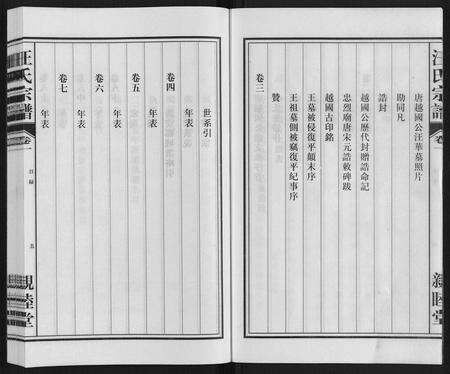 汪氏宗譜
卷一
親睦堂
唐越國公汪華墓照片
助同凡
卷三
誥封
越國公歷代封贈誥命記
忠烈廟唐宋元誥敕碑跋
越國古印銘
王墓被侵復平顛末序
王祖墓側被竊復平紀事序
贊
世系引
年表
卷四
年表
卷五
年表
卷六
年表
卷七
年表
汪氏宗譜
卷一
目錄
五
親睦堂